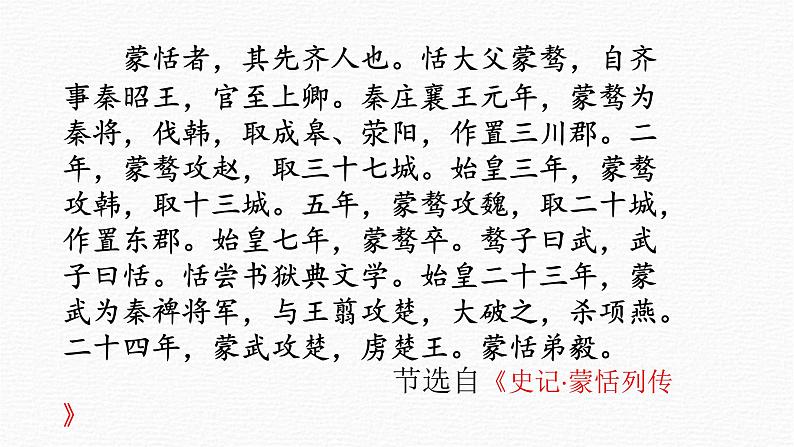 蒙恬者，其先齐人也。恬大父蒙骜，自齐
事秦昭王，官至上卿。秦庄襄王元年，蒙骜为
秦将，伐韩，取成皋、荥阳，作置三川郡。二
年，蒙骜攻赵，取三十七城。始皇三年，蒙骜
攻韩，取十三城。五年，蒙骜攻魏，取二十城，
作置东郡。始皇七年，蒙骜卒。骜子曰武，武
子曰恬。恬尝书狱典文学。始皇二十三年，蒙
武为秦裨将军，与王翦攻楚，大破之，杀项燕。
二十四年，蒙武攻楚，虏楚王。蒙恬弟毅。
节选自《史记·蒙恬列传
》